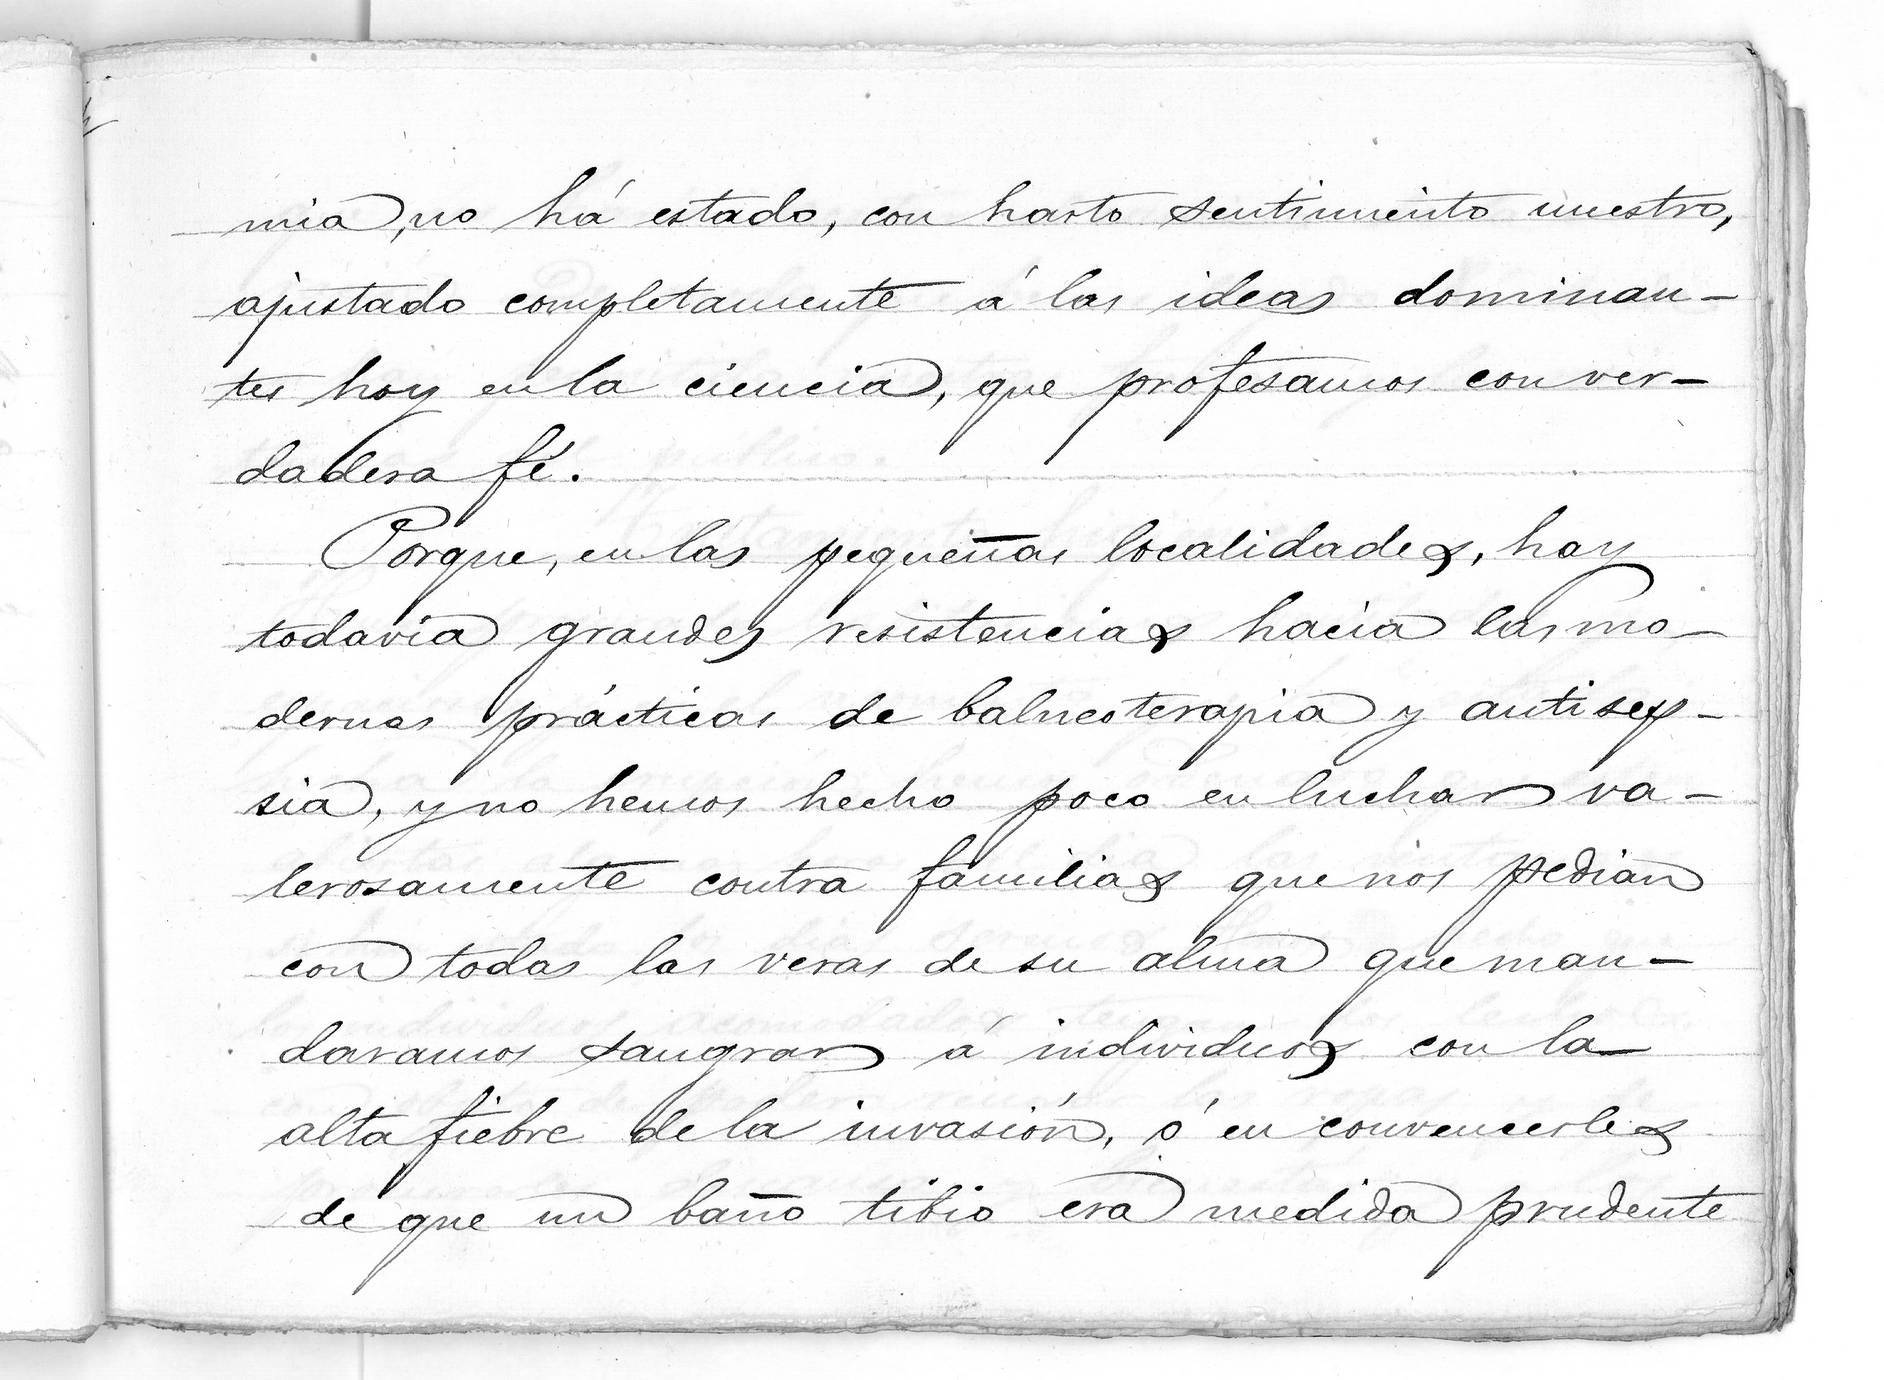 mia, no há estado, con harto sentimiento nuestro,
ajustado completamente á las ideas dominan-
tes hoy en la ciencia, que profesamos con ver-
dadera fé.
Porque, en las pequeñas localidades, hay
todavía grandes resistencias hacia las mo-
dernas prácticas de balneoterapia y antisep-
sia, y no hemos hecho poco en luchar va-
lerosamente contra familias que nos pedian
con todas las veras de su alma que man-
daramos sangrar á individuos con la
alta fiebre de la invasión, ó en convencerles
de que un baño tibio era medida prudente